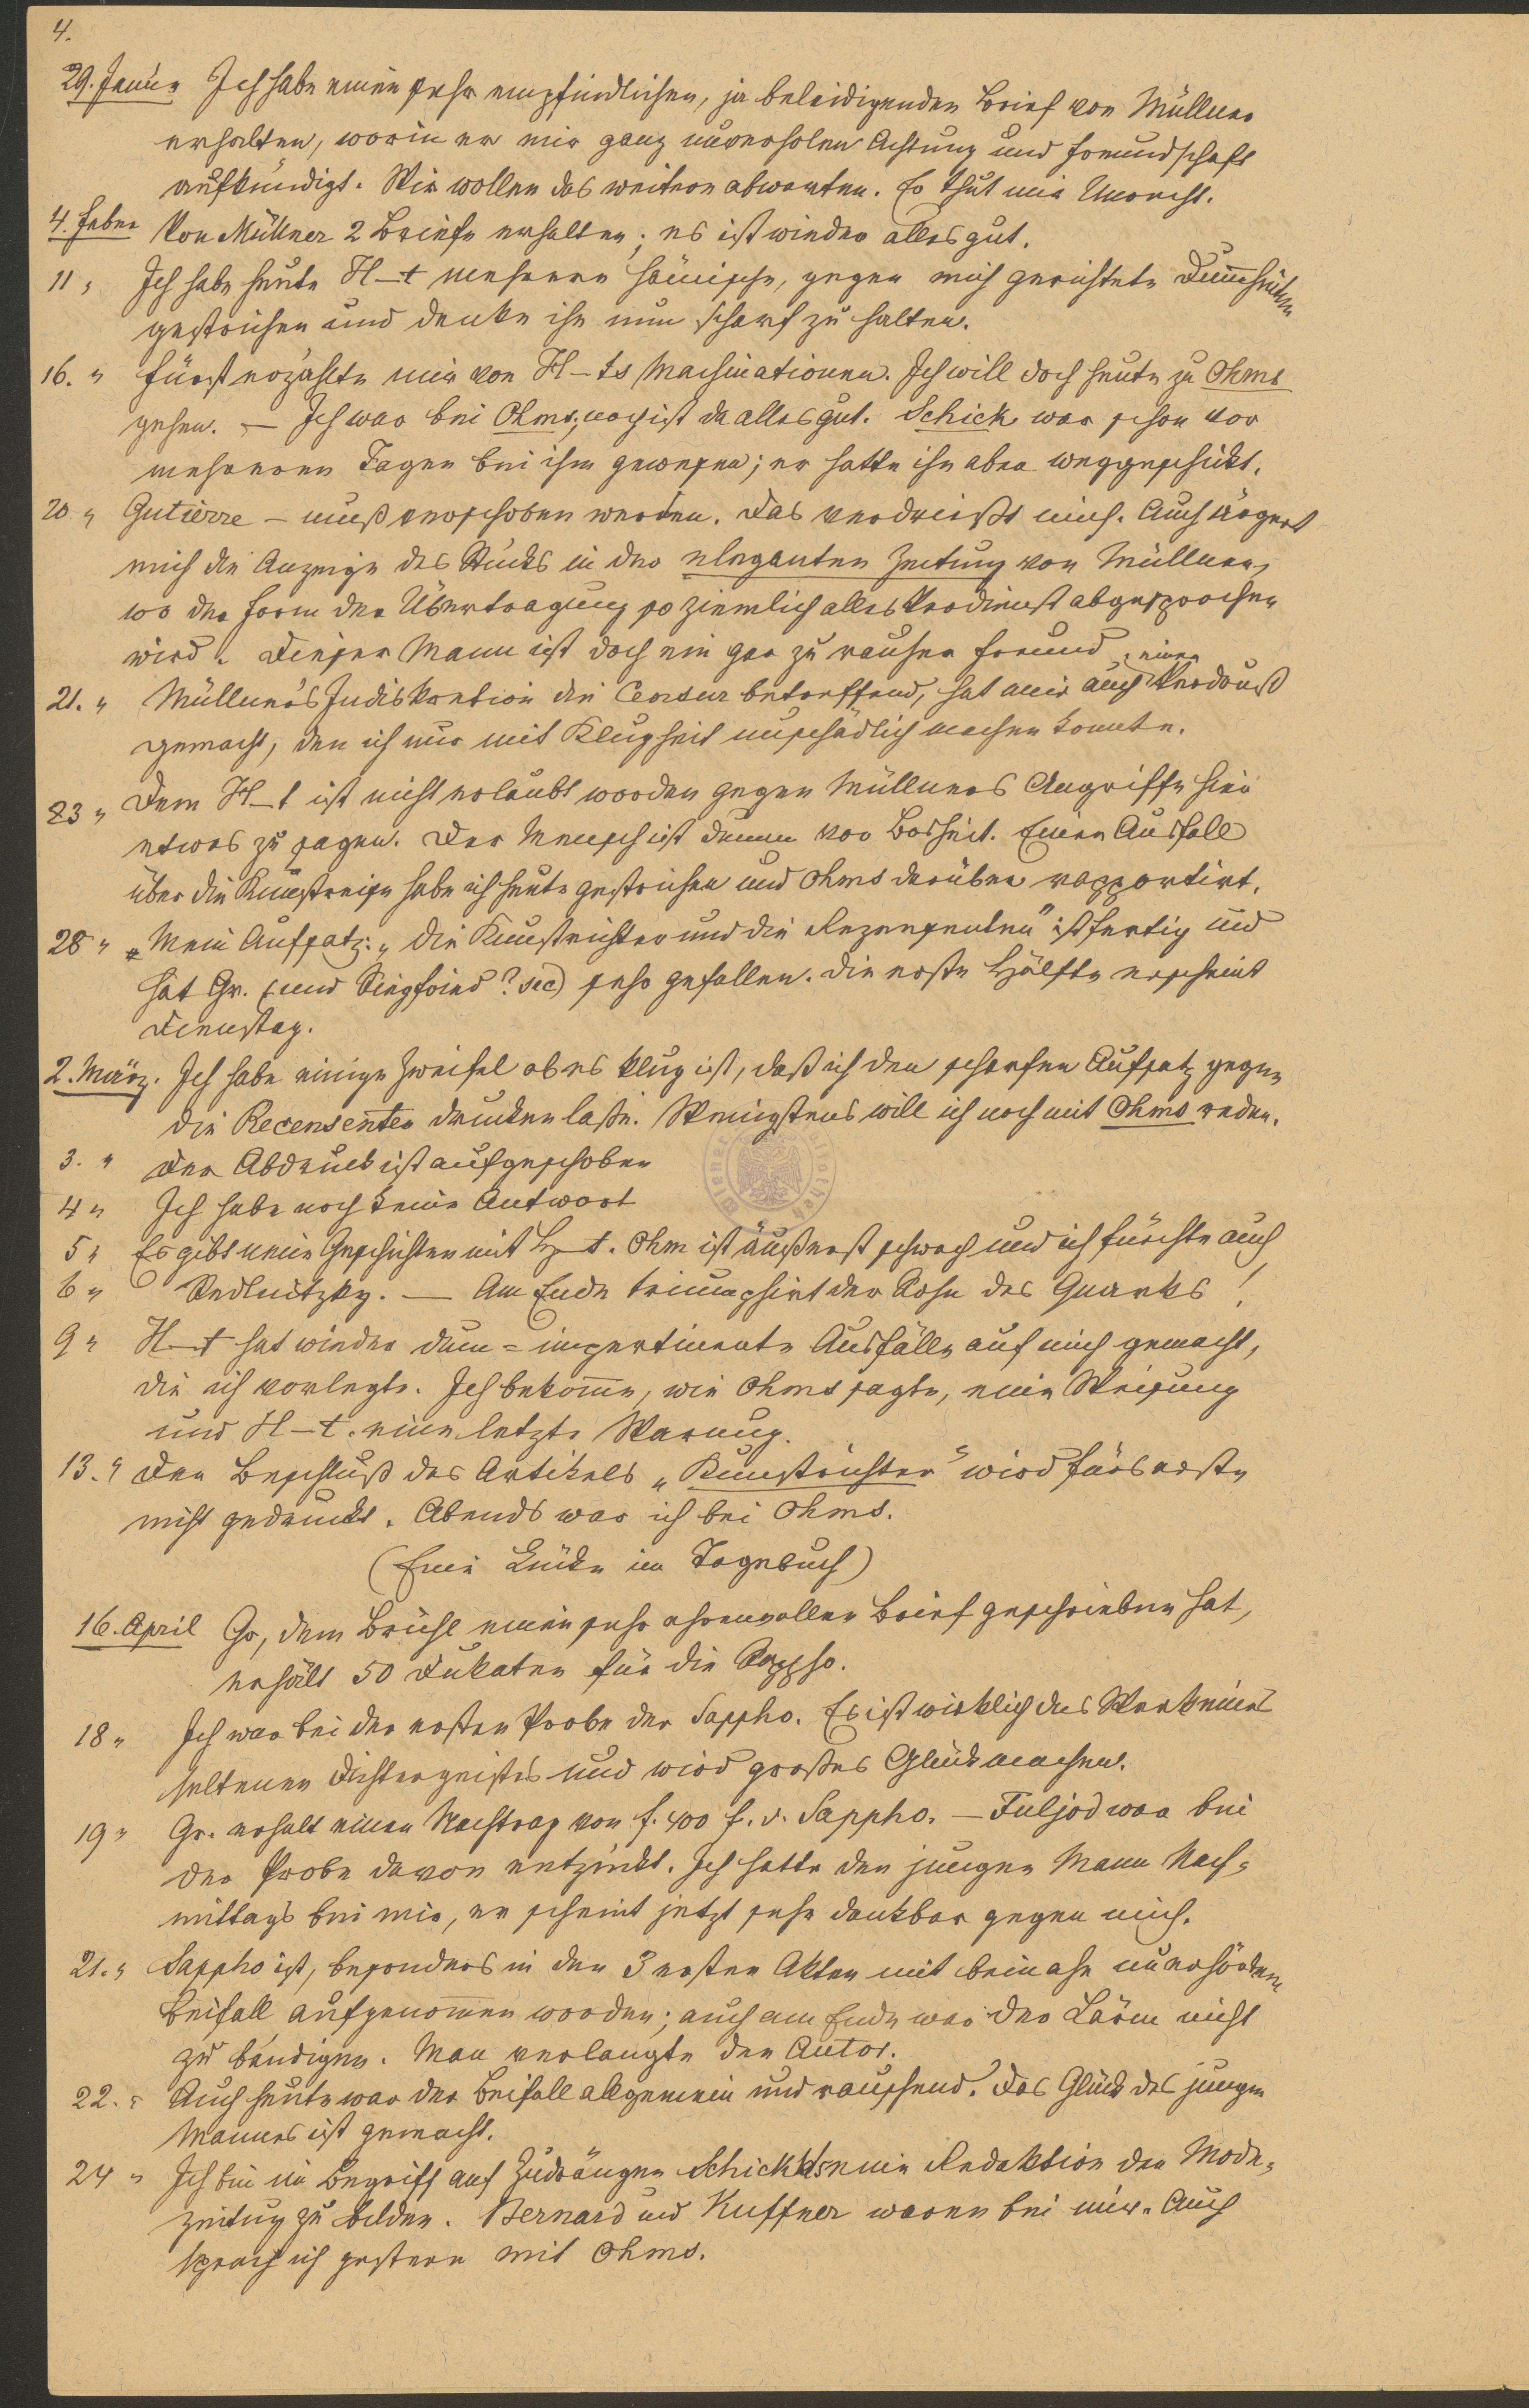 4.
29. Januar Ich habe einen sehr empfindlichen, ja beleidigenden Brief von Müllner
erhalten, worin er mir ganz unverholen Achtung und Freundschaft
aufkündigt. Wir wollen das weitere abwarten. Er thut mir Unrecht.
4. Feber Von Müllner 2 Briefe erhalten; es ist wieder alles gut.
11 " Ich habe heute H–t mehrere hämische, gegen mich gerichtete Dum̅heiten
gestrichen und denke ihn nun scharf zu halten.
16. " Fürst erzählte mir von H–ts Machinationen. Ich will doch heute zu Ohms
gehen. – Ich war bei Ohms; noch ist da alles gut. Schick war schon vor
mehreren Tagen bei ihm gewesen; er hatte ihn aber weggeschickt.
20 " Gutierre – muß verschoben werden. Das verdrießt mich. Auch ärgert
mich die Anzeige des Stücks in der eleganten Zeitung von Müllner,
wo der Form der Übertragung so ziemlich alles Verdienst abgesprochen
wird. Dieser Mann ist doch ein gar zu rauher Freund.
21. " Müllner's Indiskretion die Censur betreffend, hat mir auch einen Verdruß
gemacht, den ich nur mit Klugheit unschädlich machen konnte.
23 " Dem H–t ist nicht erlaubt worden gegen Müllners Angriffe hier
etwas zu sagen. Der Mensch ist dumm vor Bosheit. Einen Ausfall
über die Kunstreise habe ich heute gestrichen und Ohms darüber rapportirt.
28 " Mein Aufsatz: „Die Kunstrichter und die Rezensenten" ist fertig und
hat Gr. (und Siegfried? sic) sehr gefallen. Die erste Hälfte erscheint
Dienstag.
2. März. Ich habe einige Zweifel ob es klug ist, daß ich den scharfen Aufsatz gegen
die Recensenten drucken laße. Wenigstens will ich noch mit Ohms reden.
3. " Der Abdruck ist aufgeschoben
4 " Ich habe noch keine Antwort
5 " Es gibt neue Geschichten mit H–t. Ohm ist äußerst schwach und ich fürchte auch
6 " Sedlnitzky. — Am Ende triumphirt der Sohn des Quarks!
9 " H–t hat wieder dum̅=impertinente Ausfälle auf mich gemacht,
die ich vorlegte. Ich bekom̅e, wie Ohms sagte, eine Weisung
und H–t. eine letzte Warnung.
13. " Der Beschluß des Artikels „Kunstrichter" wird fürs erste
nicht gedruckt. Abends war ich bei Ohms.
(Eine Lücke im Tagebuch)
16. April Gr, dem Brühl einen sehr ehrenvollen Brief geschrieben hat,
erhält 50 Dukaten für die Sappho.
18 " Ich war bei der ersten Probe der Sappho. Es ist wirklich das Werk eines
seltenen Dichtergeistes und wird großes Glück machen.
19 " Gr. erhält einen Nachtrag von f. 400 f. d. Sappho. – Fuljod war bei
der Probe davon entzückt. Ich hatte den jungen Mann Nach=
mittags bei mir, er scheint jetzt sehr dankbar gegen mich.
21. " Sappho ist, besonders in den 3 ersten Akten mit beinahe unerhörtem
Beifall aufgenom̅en worden; auch am Ende war der Lärm nicht
zu bändigen. Man verlangte den Autor.
22. " Auch heute war der Beifall allgemein und rauschend. Das Glück des jungen
Mannes ist gemacht.
24 " Ich bin im Begriff auf Zudrängen Schickhs eine Redaktion der Mode=
zeitung zu bilden. Bernard und Kuffner waren bei mir. Auch
sprach ich gestern mit Ohms.